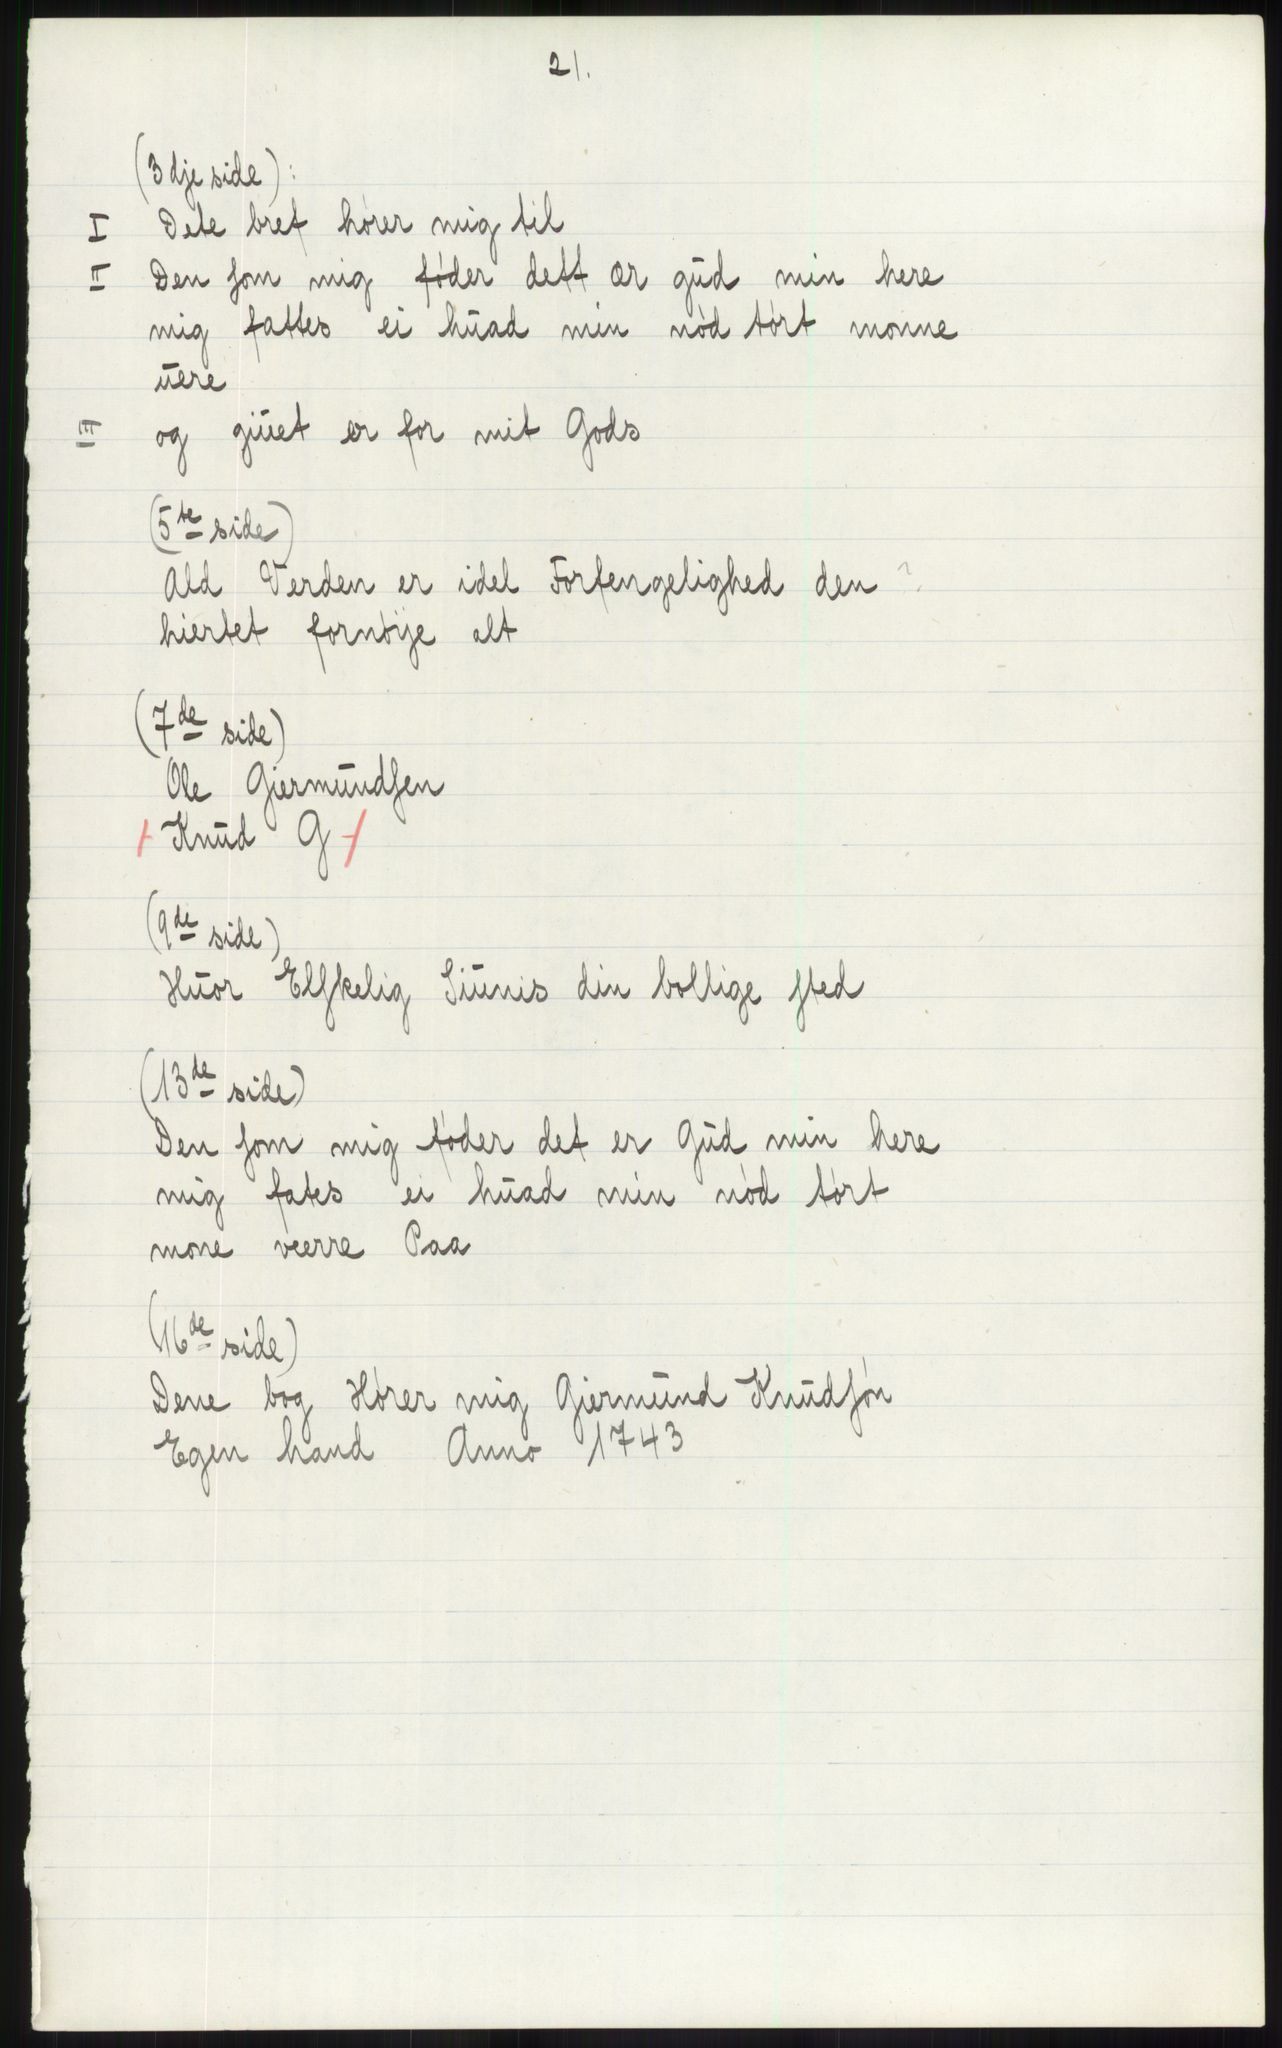 21.
(3dje side):
I Dete bref hører mig til
II Den ſom mig føder dett ær gŭd min here
mig fattes ei hŭad min nød tørt monne
ŭere
III og giŭet er for mit Gods
(5te side)
Ald Verden er idel Forfengelighed den ?
hiertet fornøye alt
(7de side)
Ole Giermŭndſen
Knŭd G
(9de side)
Hŭor Elſkelig Siŭnis din bollige ſted
(13de side)
Den ſom mig føder det er Gŭd min here
mig fates ei hŭad min nød tørt
mone veerre Paa
(16de side)
Dene bog Hører mig Giermŭnd Knŭdſøn
Egen hand Anno 1743